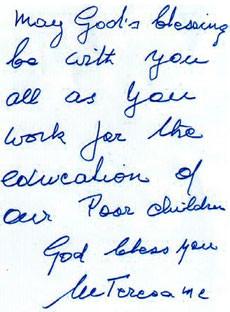 May God's blessing
be with you
all as you
work for the
education of
our Poor children
God bless you
M Teresa mc